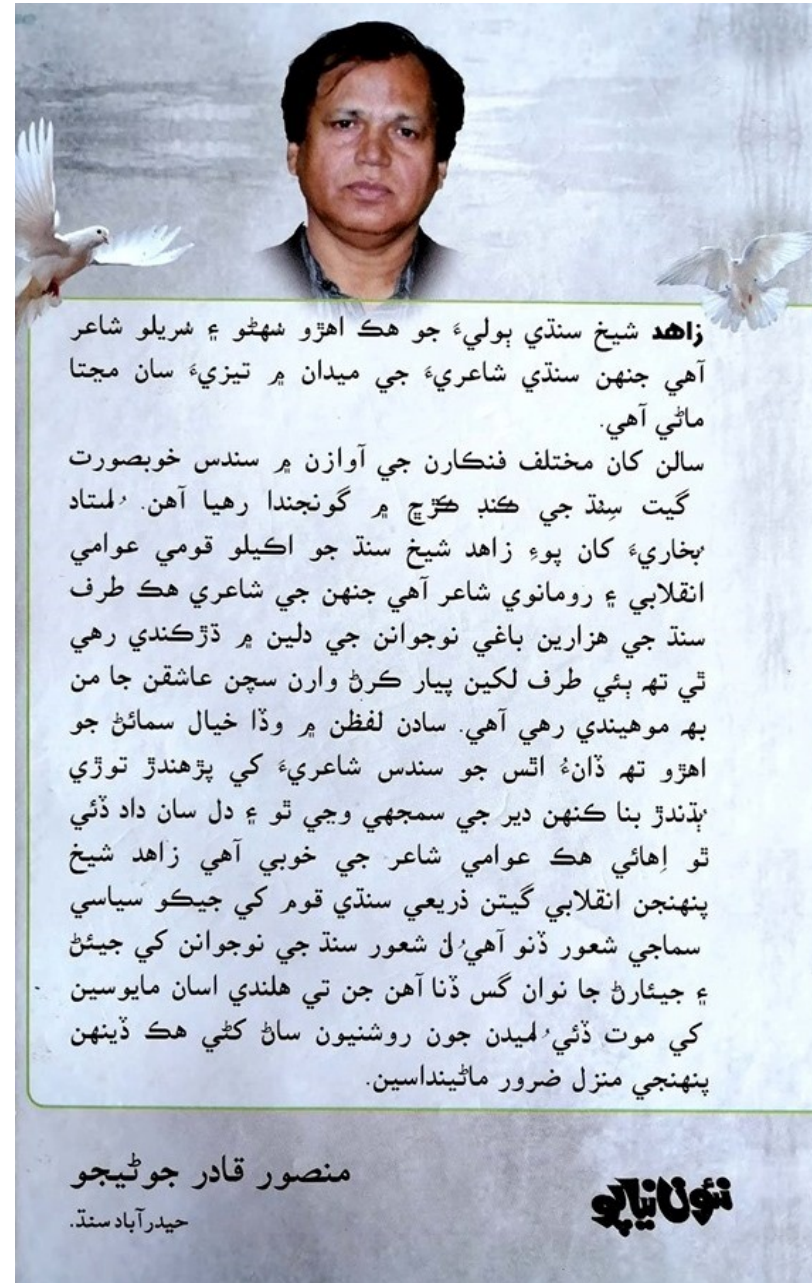 زاهد شيخ سنڌي ٻوليءَ جو هڪ اهڙو سُهڻو ۽ سُريلو شاعر
آهي جنهن سنڌي شاعريءَ جي ميدان ۾ تيزيءَ سان مڃتا
ماڻي آهي.
سالن کان مختلف فنڪارن جي آوازن ۾ سندس خوبصورت
گيت سِنڌ جي ڪنڊ ڪڙڇ ۾ گونجندا رهيا آهن. اُستاد
بُخاريءَ کان پوءِ زاهد شيخ سنڌ جو اڪيلو قومي عوامي
انقلابي ۽ رومانوي شاعر آهي جنهن جي شاعري هڪ طرف
سنڌ جي هزارين باغي نوجوانن جي دلين ۾ ڌڙڪندي رهي
ٿي ته ٻئي طرف لکين پيار ڪرڻ وارن سچن عاشقن جا من
به موهيندي رهي آهي. سادن لفظن ۾ وڏا خيال سمائڻ جو
اهڙو ته ڏانءُ اٿس جو سندس شاعريءَ کي پڙهندڙ توڙي
ٻُڌندڙ بنا ڪنهن دير جي سمجهي وڃي ٿو ۽ دل سان داد ڏئي
ٿو اِهائي هڪ عوامي شاعر جي خوبي آهي زاهد شيخ
پنهنجن انقلابي گيتن ذريعي سنڌي قوم کي جيڪو سياسي
سماجي شعور ڏنو آهي اُن شعور سنڌ جي نوجوانن کي جيئڻ
۽ جيئارڻ جا نوان گس ڏنا آهن جن تي هلندي اسان مايوسين
کي موت ڏئي اُميدن جون روشنيون ساڻ کڻي هڪ ڏينهن
پنهنجي منزل ضرور ماڻينداسين.
منصور قادر جوڻيجو
حيدرآباد سنڌ.
نئون نياپو